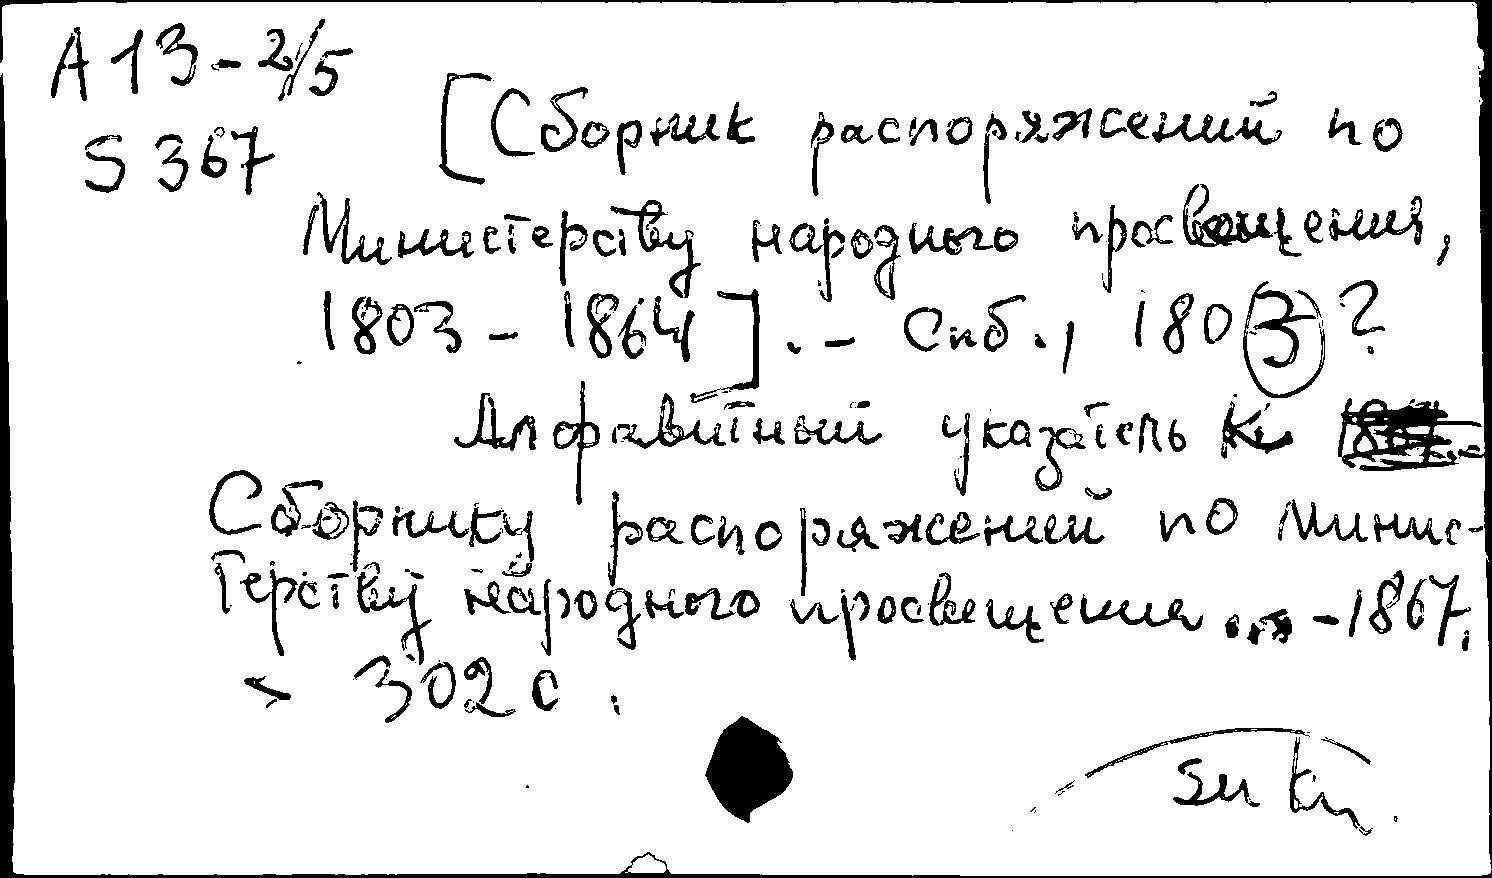 A 13-2/5
S 367
[Сборник распоряжений по
Министерству народного просвещения,
1803 - 1864]. - Спб., 1803?
Алфавитный указатель к
Сборнику распоряжений по минис-
терству народного просвещения ... - 1867.
- 302 с.